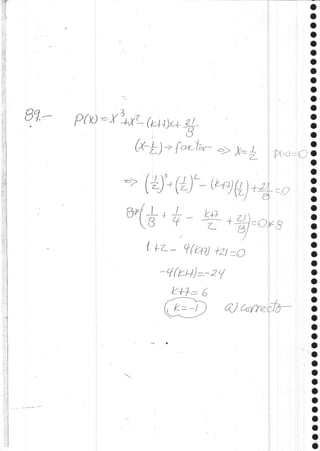 89.- P(x) = x³+x²-(k+7)x+ 21/8
(x-1/2) → factor ⇒ x=1/2 P(x)=0
⇒ (1/2)³+(1/2)²-(k+7)(1/2)+21/8=0
8*(1/8 + 1/4 - k+7/2 + 21/8)=0*8
1+2- 4(k+7)+21=0
-4(k+7)=-24
k+7=6
k=-1 a) correcto